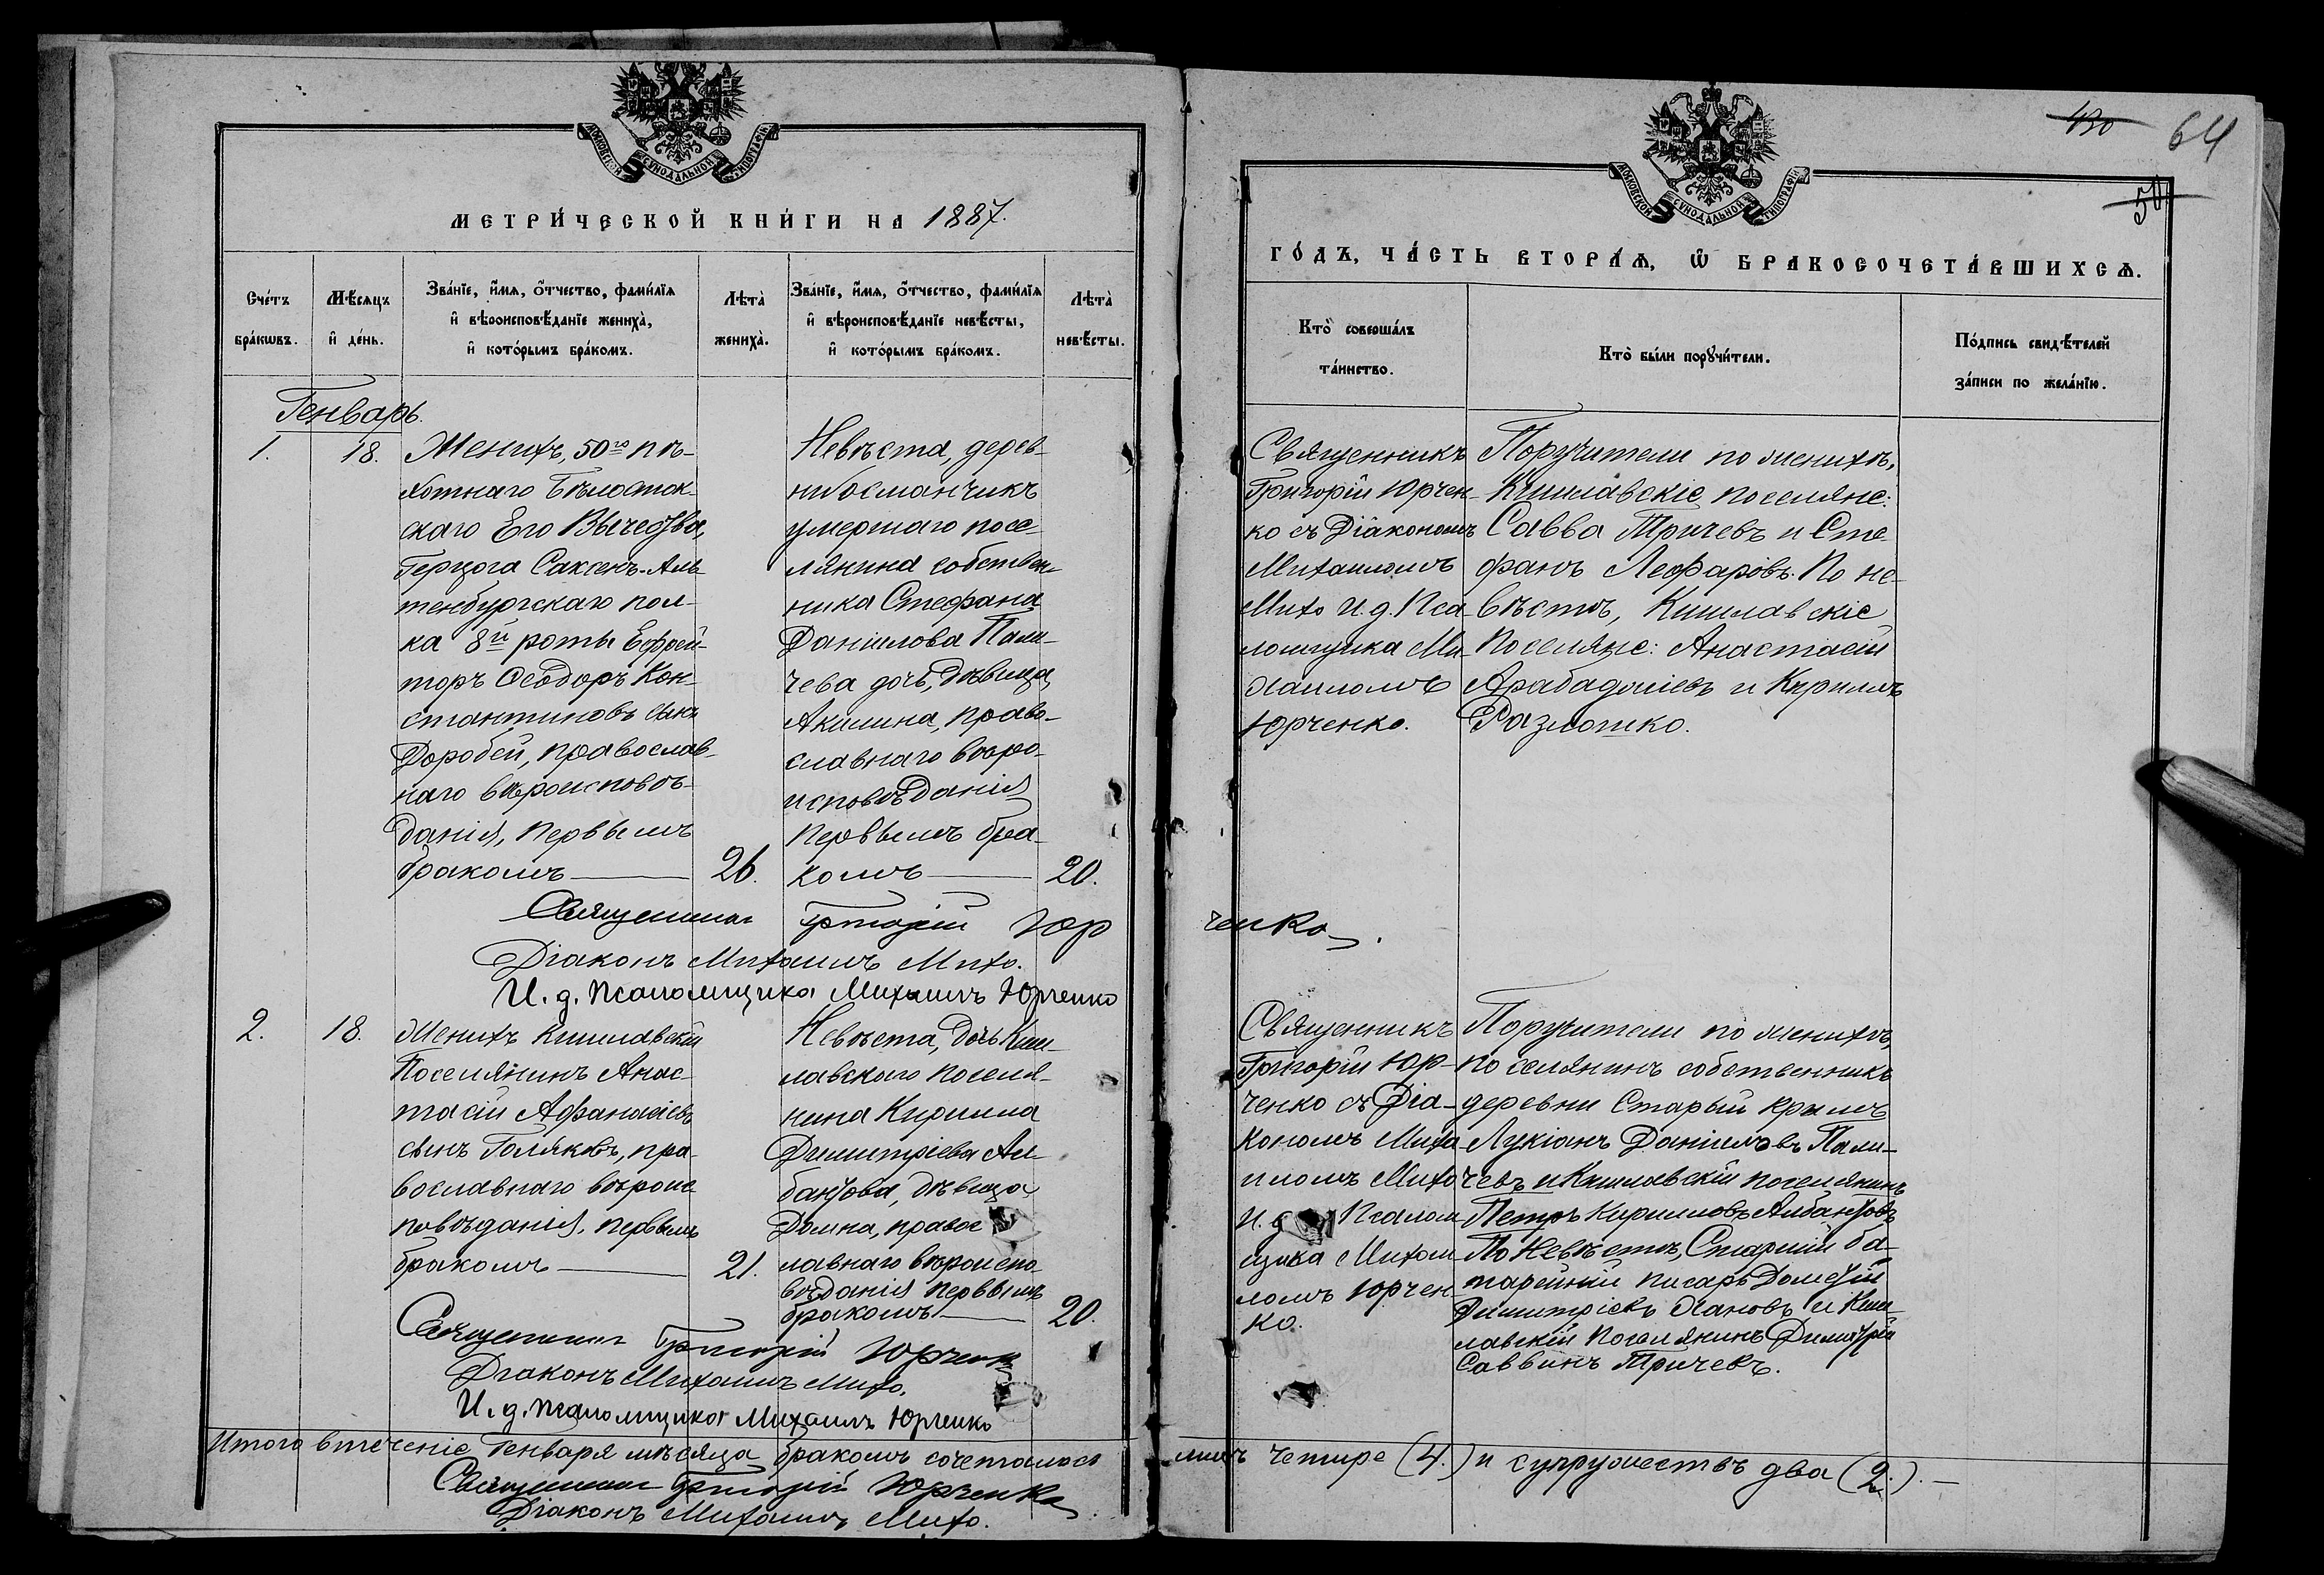 МОСКОВСКОЙ СѴНОДАЛЬНОЙ ТИПОГРАФІИ
МЕТРИ́ЧЕСКОЙ КНИ́ГИ НА 1887.
Сче́тъ бра́кѡвъ.
Мѣ́сяцъ и҆ де́нь.
Зва́нїе, и҆́мя, о҆́тчество, фами́лїя
и҆ вѣроисповѣ́данїе жениха̀,
и҆ кото́рымъ бра́комъ.
Лѣта̀ жениха̀.
Зва́нїе, и҆́мя, о҆́тчество, фами́лїя
и҆ вѣроисповѣ́данїе невѣ́сты,
и҆ кото́рымъ бра́комъ.
Лѣта̀ невѣ́сты.
Генварь.
1.
18.
Женихъ, 50го пѣ-
хотнаго Бѣлосток-
скаго Его Высочества,
Герцога Саксенъ-Аль-
тенбургскаго пол-
ка 8й роты Ефрей-
торъ Ѳеодоръ Кон-
стантиновъ сынъ
Доробей, православ-
наго вѣроисповѣ-
данія, первымъ
бракомъ — 26.
Невѣста, дерев-
ни Османчикъ
умершаго посе-
лянина собствен-
ника Стефана
Даніилова Пали-
чева дочь, дѣвица
Акилина, право-
славнаго вѣро-
исповѣданія
первымъ бра-
комъ — 20.
Священникъ Григорій Юрченко.
Діаконъ Михаилъ Михо.
И. д. псаломщика Михаилъ Юрченко
2.
18.
Женихъ Кишлавскій
Поселянинъ Анас-
тасій Аѳанасіевъ
сынъ Голяковъ, пра-
вославнаго вѣроис-
повѣданія, первымъ
бракомъ — 21.
Невѣста, дочь Киш-
лавскаго поселя-
нина Кирилла
Димитріева Ал-
бантова, дѣвица
Домна, правос
лавнаго вѣроиспо-
вѣданія первымъ
бракомъ — 20.
Священникъ Григорій Юрченко
Діаконъ Михаилъ Михо.
И. д. псаломщика Михаилъ Юрченко
Итого втеченіе Генваря мѣсяца бракомъ сочеталось лицъ четыре (4.) и супружествъ два (2.). —
Священникъ Григорій Юрченко
Діаконъ Михаилъ Михо.
64
50
МОСКОВСКОЙ СѴНОДАЛЬНОЙ ТИПОГРАФІИ
ГО́ДЪ, ЧА́СТЬ ВТОРА́Ѧ, Ѡ҆ БРАКОСОЧЕТА́ВШИХСѦ.
Кто̀ соверша́лъ
та́инство.
Кто̀ бы́ли порꙋчи́тели.
По́дпись свидѣ́телей
за́писи по жела́нїю.
Священникъ
Григорій Юрчен-
ко съ Діакономъ
Михаиломъ
Михо И. д. Пса-
ломщика Ми-
хаиломъ
Юрченко.
Поручители по женихѣ,
Кишлавскіе поселяне:
Савва Тричевъ и Сте-
фанъ Лефаровъ. По не-
вѣстѣ, Кишлавскіе
Поселяне: Анастасій
Арабаджіевъ и Кириллъ
Разложко.
Священникъ
Григорій Юр-
ченко съ Діа-
кономъ Миха
иломъ Михо
И. д. Псалом
щика Михаи
ломъ Юрчен
ко.
Поручители по женихѣ,
поселянинъ собственникъ
деревни Старый Крымъ
Лукіанъ Даніиловъ Пали-
чевъ и Кишлавскій поселянинъ
Петръ Кирилловъ Албантовъ
По Невѣстѣ, Старшій ба-
тарейный писарь Дометій
Димитріевъ Жановъ и Киш-
лавскій Поселянинъ Димитрій
Саввинъ Тричевъ.